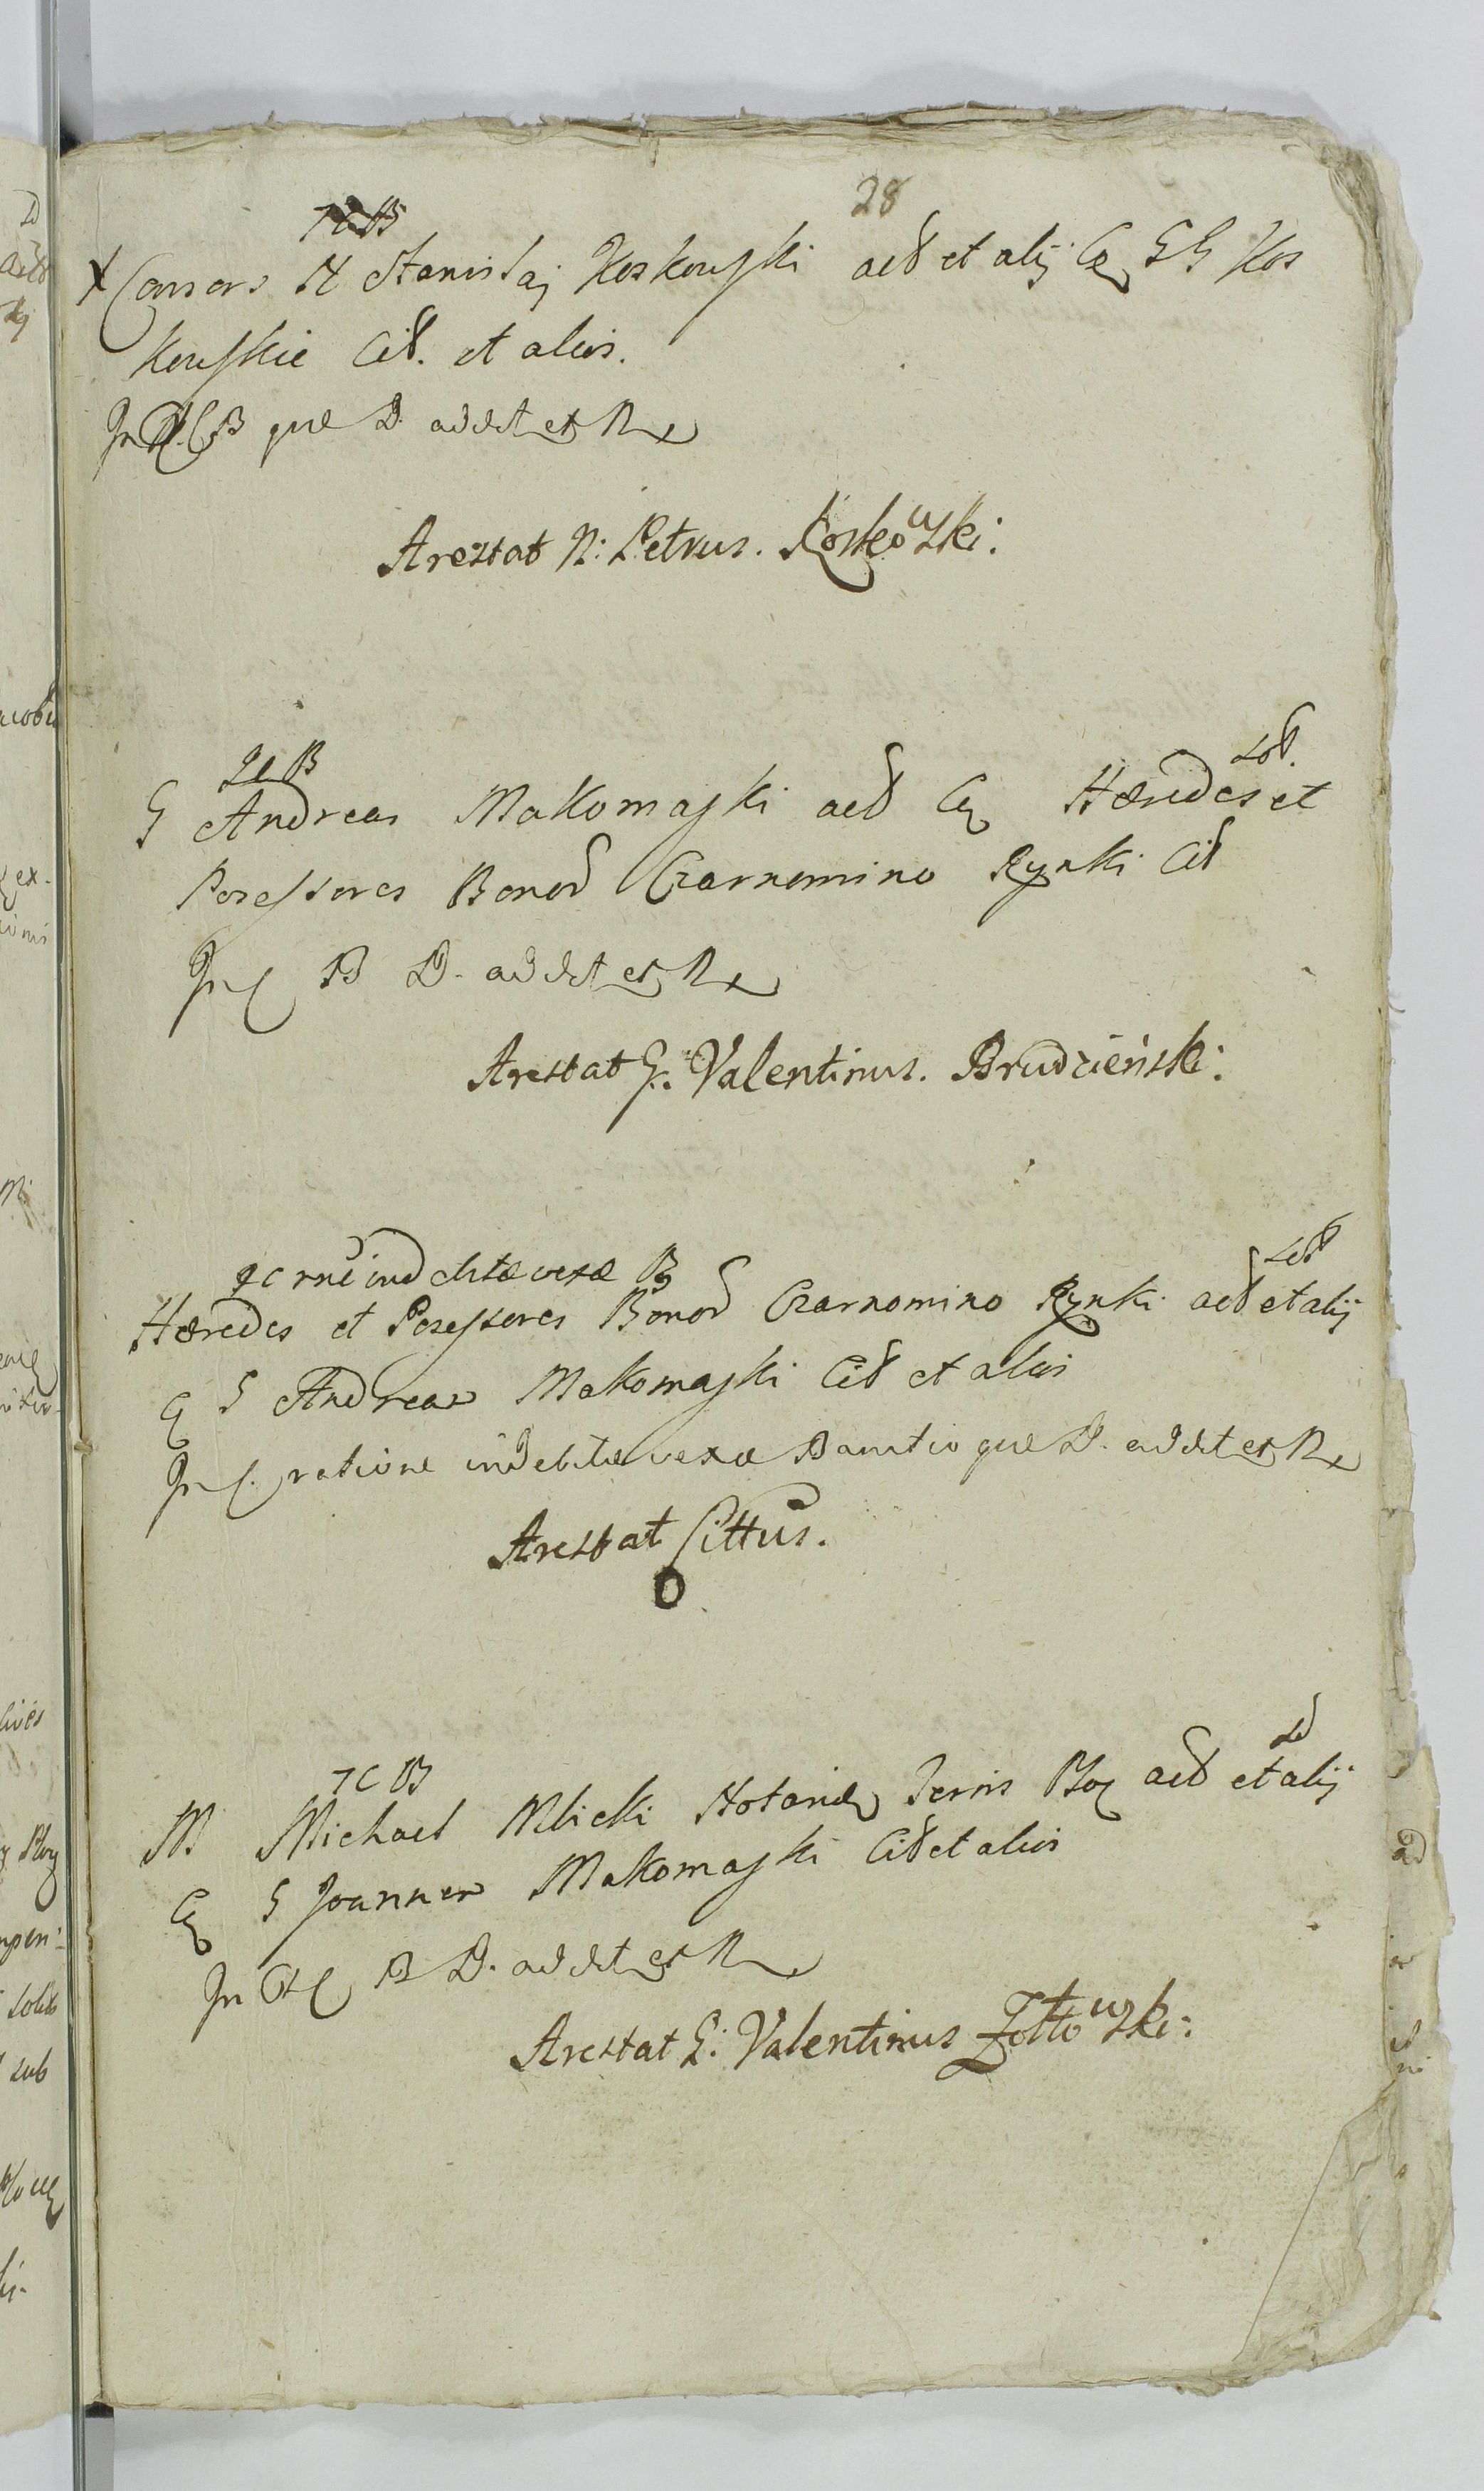 28
X Consors N Stanislaj Koskowski act et alij Cq GG Kos
kowskie Cit. et alios.
que D. addet et R
Arestat N: Petrus. Koskowski:
Lib.
G Andreas Makomaski act Cq Hæredes et
Possessores Bonor Czarnomino Rynki Cit
In C B D. addet et R
Arestat G: Valentinus. Brudzieński:
indebitæ vexæ B
Hæredes et Possessores Bonor Czarnomino Rynki act et alij
Cq G Andreas Makomaski Cit et alios
In C. ratione indebitæ vexæ Bannitio que D. addet et R
Arestat Cittus.
O
7 C B
M Michael Mlicki Notarius Terris Ploc act et alij
Cq G Joannem Makomaski Cit et alios
B D. addet et R
Arestat G: Valentinus Żółtowski: